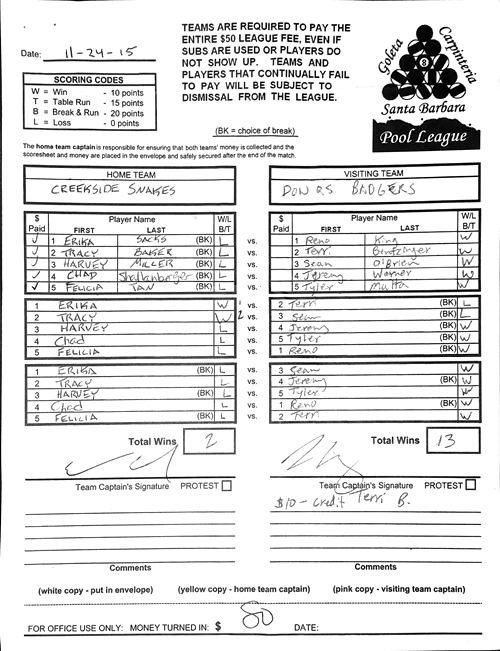 Date: 11-24-15
TEAMS ARE REQUIRED TO PAY THE
ENTIRE $50 LEAGUE FEE, EVEN IF
SUBS ARE USED OR PLAYERS DO
NOT SHOW UP. TEAMS AND
PLAYERS THAT CONTINUALLY FAIL
TO PAY WILL BE SUBJECT TO
DISMISSAL FROM THE LEAGUE.
Goleta
Carpinteria
8
Santa Barbara
Pool League
SCORING CODES
W = Win - 10 points
T = Table Run - 15 points
B = Break & Run - 20 points
L = Loss - 0 points
(BK = choice of break)
The home team captain is responsible for ensuring that both teams' money is collected and the
scoresheet and money are placed in the envelope and safely secured after the end of the match.
HOME TEAM VISITING TEAM
CREEKSIDE SNAKES DON Q'S BADGERS
$ Paid Player Name FIRST LAST W/L B/T $ Paid Player Name FIRST LAST W/L B/T
✓ 1 ERIKA SACKS (BK) L vs. 1 Reno King W
✓ 2 TRACY (BK) L vs. 2 Terri W
✓ 3 HARVEY MILLER (BK) L vs. 3 Sean O'Brien W
✓ 4 CHAD Shallanbarger (BK) L vs. 4 Jeremy Warner W
✓ 5 FELICIA TAN (BK) L vs. 5 Tyler W
1 ERIKA W 1 vs. 2 Terri (BK) L
2 TRACY W 2 vs. 3 Sean (BK) L
3 HARVEY L vs. 4 Jeremy (BK) W
4 Chad L vs. 5 Tyler (BK) W
5 FELICIA L vs. 1 Reno (BK) W
1 ERIKA (BK) L vs. 3 Sean W
2 TRACY L vs. 4 Jeremy (BK) W
3 HARVEY (BK) L vs. 5 Tyler W
4 Chad L vs. 1 Reno (BK) W
5 FELICIA (BK) L vs. 2 Terri W
Total Wins 2 Total Wins 13
Team Captain's Signature PROTEST Team Captain's Signature PROTEST
$10 - Credit Terri B.
Comments Comments
(white copy - put in envelope) (yellow copy - home team captain) (pink copy - visiting team captain)
FOR OFFICE USE ONLY: MONEY TURNED IN: $ 80 DATE: